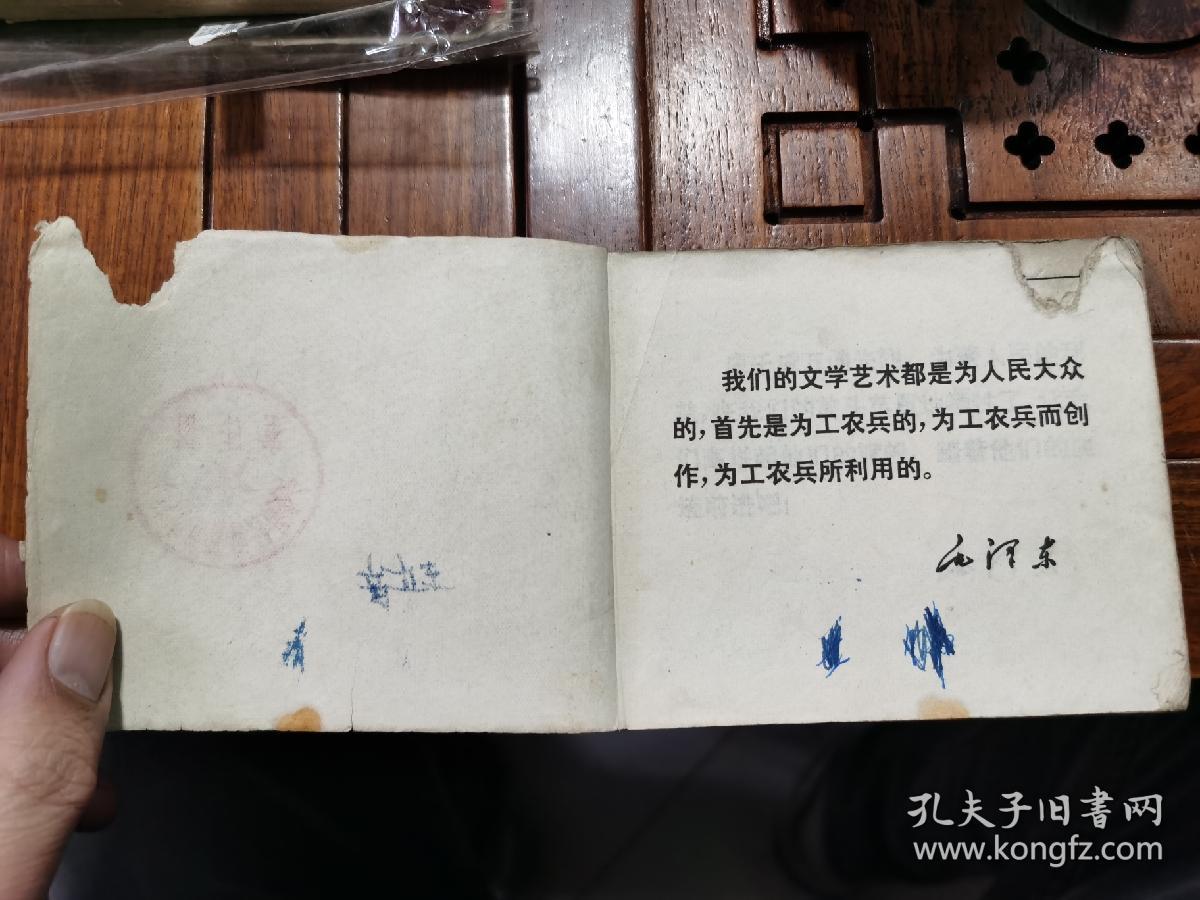 我们的文学艺术都是为人民大众
的，首先是为工农兵的，为工农兵而创
作，为工农兵所利用的。
毛泽东
孔夫子旧書网
www.kongfz.com